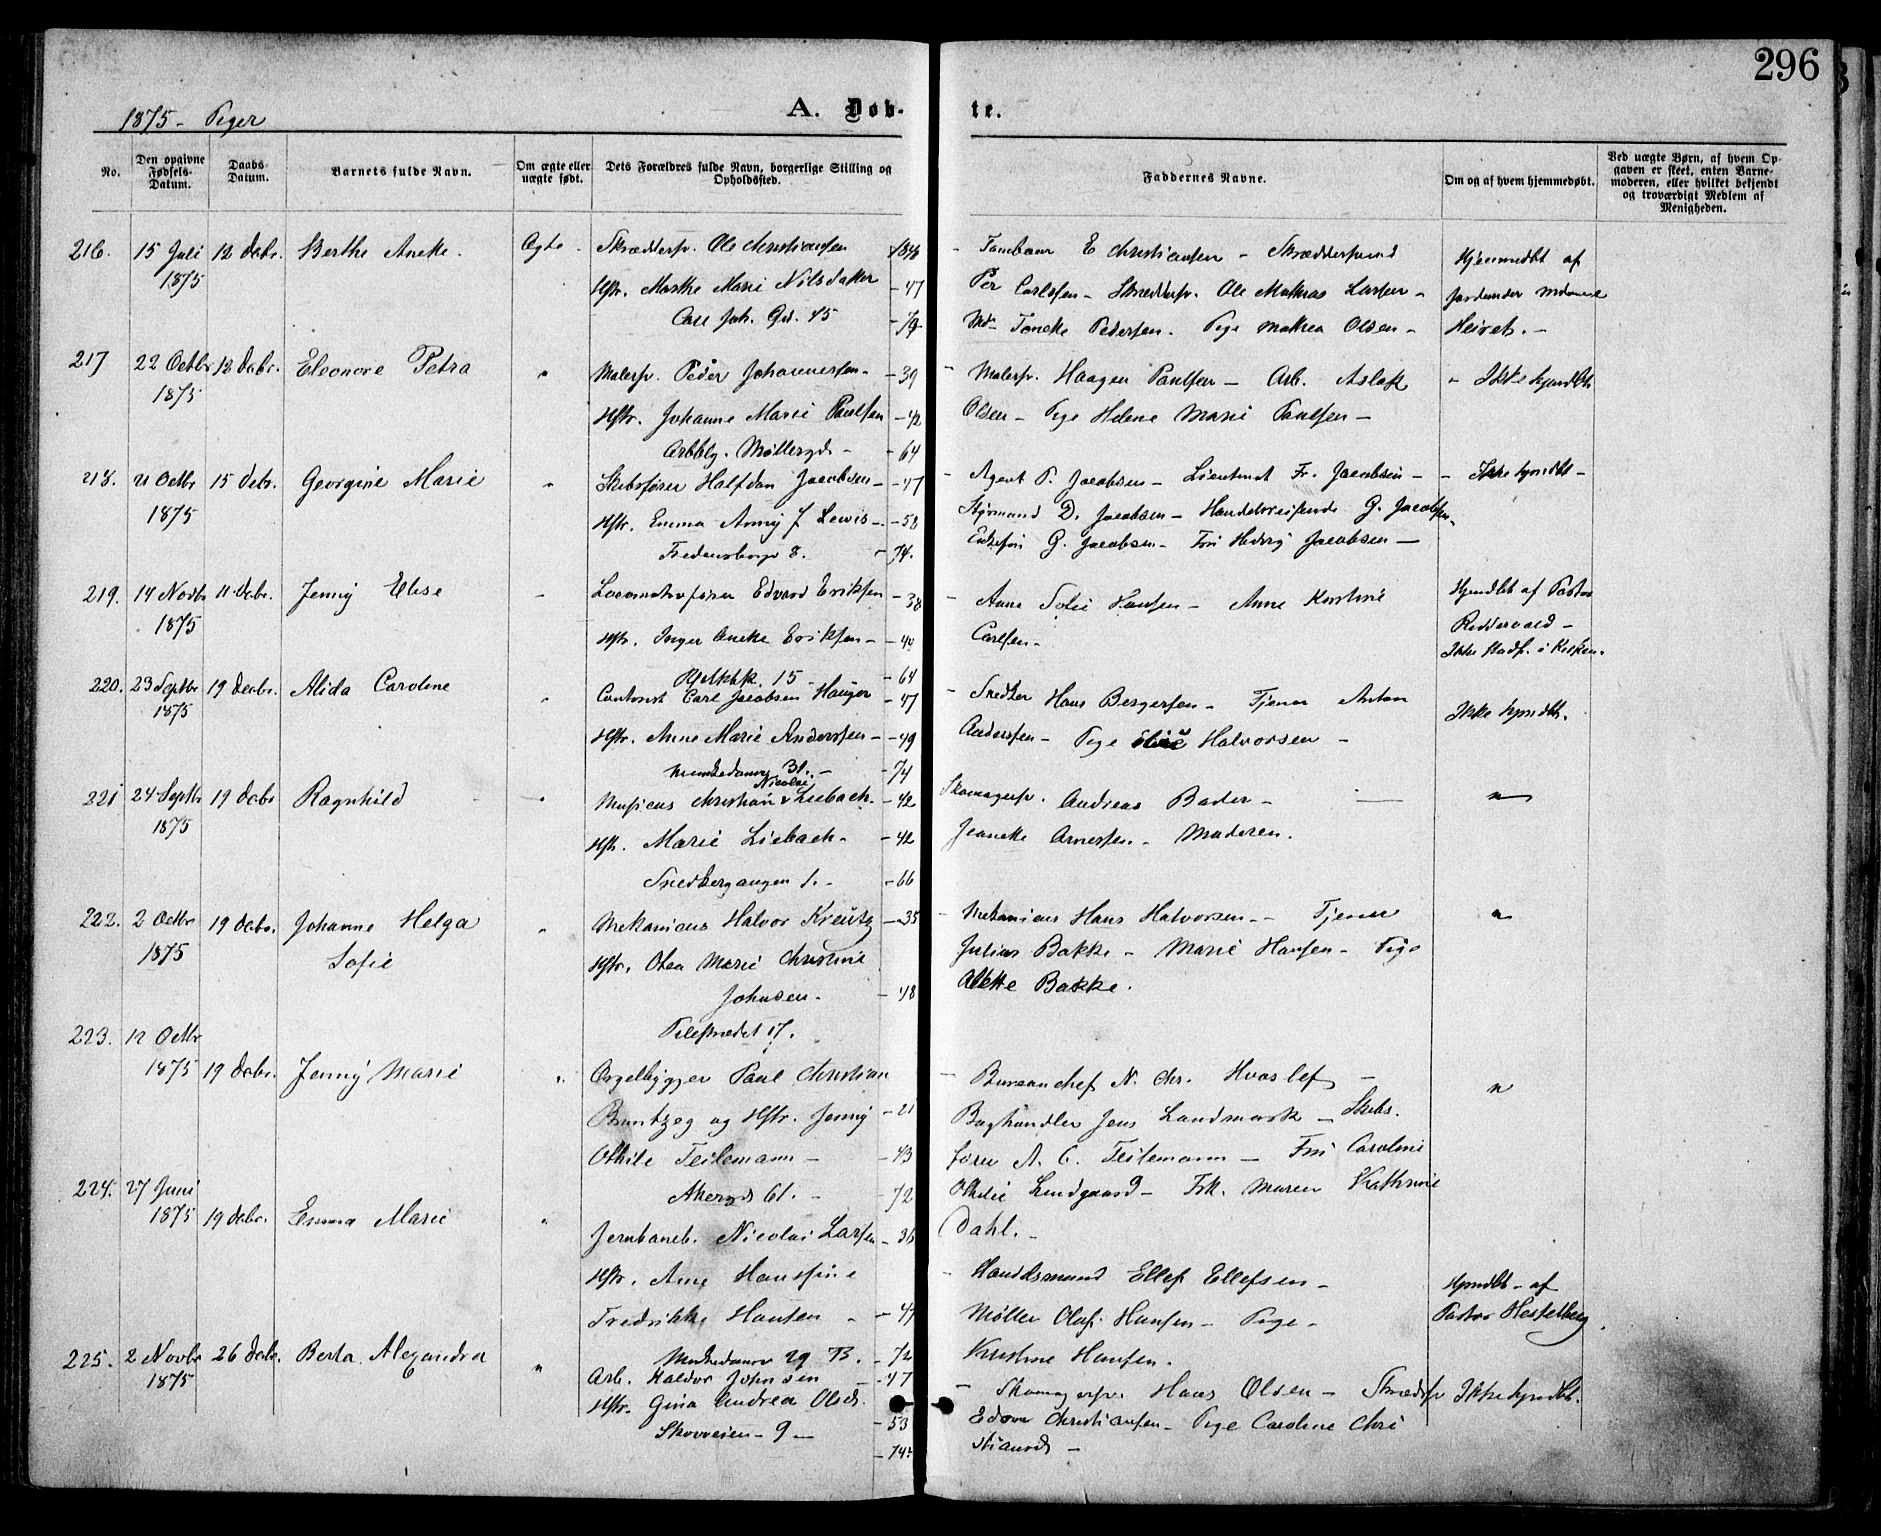 296
1875 - Piger
A. Døb-
te.
No.
Den opgivne Fødsels-Datum.
Daabs-Datum.
Barnets fulde Navn.
Om ægte eller uægte født.
Dets Forældres fulde Navn, borgerlige Stilling og Opholdssted.
Faddernes Navne.
Om og af hvem hjemmedøbt.
Ved uægte Børn, af hvem Opgaven er skeet, enten Barnemoderen, eller hvilket bekjendt og troværdigt Medlem af Menigheden.
216. 15 Juli 12 Dcbr. Berthe Aneke. Ægte - Skræddersv. Ole Christiansen 1846 - E Christiansen - Skræddersvend Hjemmedøbt af
1875 Hstr. Marthe Marie Nilsdatter - 47 Per Carlsen - Skræddersv. Ole Mathias Larsen - Jordmoder
Carl Joh. Gd. 45 - 74 Pedersen. Pige Mathea Olsen -
217 22 Octbr 12 Dcbr. Eleonore Petra " Malersv. Peder Johannessen - 39 - Malersv. Haagen Paulsen - Arb. Aslak - Ikke hjmdbt
1875 Hstr. Johanne Marie Paulsen - 42 Olsen - Pige Helene Marie Paulsen -
Møllergd. - - 64
218. 21 Octbr 15 Dcbr. Georgine Marie " Skibsfører Halfdan Jacobsen - 47 - Agent P. Jacobsen - Lieutnant Fr. Jacobsen - - Ikke hjmdbt -
1875 Hstr. Emma Anny J Lewis - - 58 Styrmand D. Jacobsen - Handelsreisende G. Jacobsen
Fredensborgv 8. - 74. G. Jacobsen - Frk Hedvig Jacobsen -
219. 14 Novbr 11 Dcbr. Jenny Elise " Locomotivfører Edvard Eriksen - 38 - Anne Sofie Hansen - Anne Kristine Hjmdbt af Pastor
1875 Hstr. Inger Aneke Eriksen - - 40 Carlsen - Reddervold -
15 - 64 Ikke Stadf. i Kirken.
220. 23 Septbr 19 Decbr. Alida Caroline " Contorist Carl Jacobsen Hauger - 47 - Snedker Hans Bergersen - Tjener Anton Ikke hjmdbt.
1875 Hstr. Anne Marie Andersen - - 49 Andersen - Pige Halvorsen -
Munkedamsv 31. - - 74
221 24 Septbr 19 Dcbr Ragnhild " Musicus Christian Nicolai Liebach. - 42 Skomagersv. Andreas Bader - "
1875 Hstr. Marie Liebach - - 42 Jeaneke Arnesen - Moderen.
Snedkergangen 1. - - 66
222. 2 Octbr 19 Dcbr. Johanne Helga " Mekanicus Halvor Kreutz - 35 - Mekanicus Hans Halvorsen - Tjener "
1875 Sofie Hstr. Olea Marie Christine Julius Bakke - Marie Hansen - Pige
Johnsen. - 48 Alette Bakke.
Pilestrædet 17.
223. 12 Octbr
1875 19 Dcbr. Jenny Marie " Orgelbygger Paul Christian - Bureauchef N. Chr. Hvoslef - "
Brantzeg og Hstr. Jenny - 21 Boghandler Jens Landmark - Skibs.
Othilie Teilemann - - 43 fører A. C. Teilemann - Fru Caroline
Akersgd 61. - - 72 Othilie Lundgaard - Frk. Maren Kathrine
Dahl.
224. 27 Juni
1875 19 Dcbr. Emma Marie " Jernbaneb. Nicolai Larsen - 36
Hstr. Ane Hansine - Handelsmand Ellef Ellefsen - Hjmdbt - af
Fredrikke Hansen - - 47 Møller Olaf Hansen - Pige - Pastor Hesselberg.
Munkedamsv 29 B. - 72 Kristine Hansen.
225. 2 Novbr 26 Dcbr. Berta Alexandra " Arb. Haldor Johnsen - 47 - Skomagersv. Hans Olsen - Ikke hjmdbt.
1875 Hstr. Gina Andrea Olsd. - 53 Christiansen - Pige Caroline Chri
Skovveien - 9 - - 74. stiansd. -